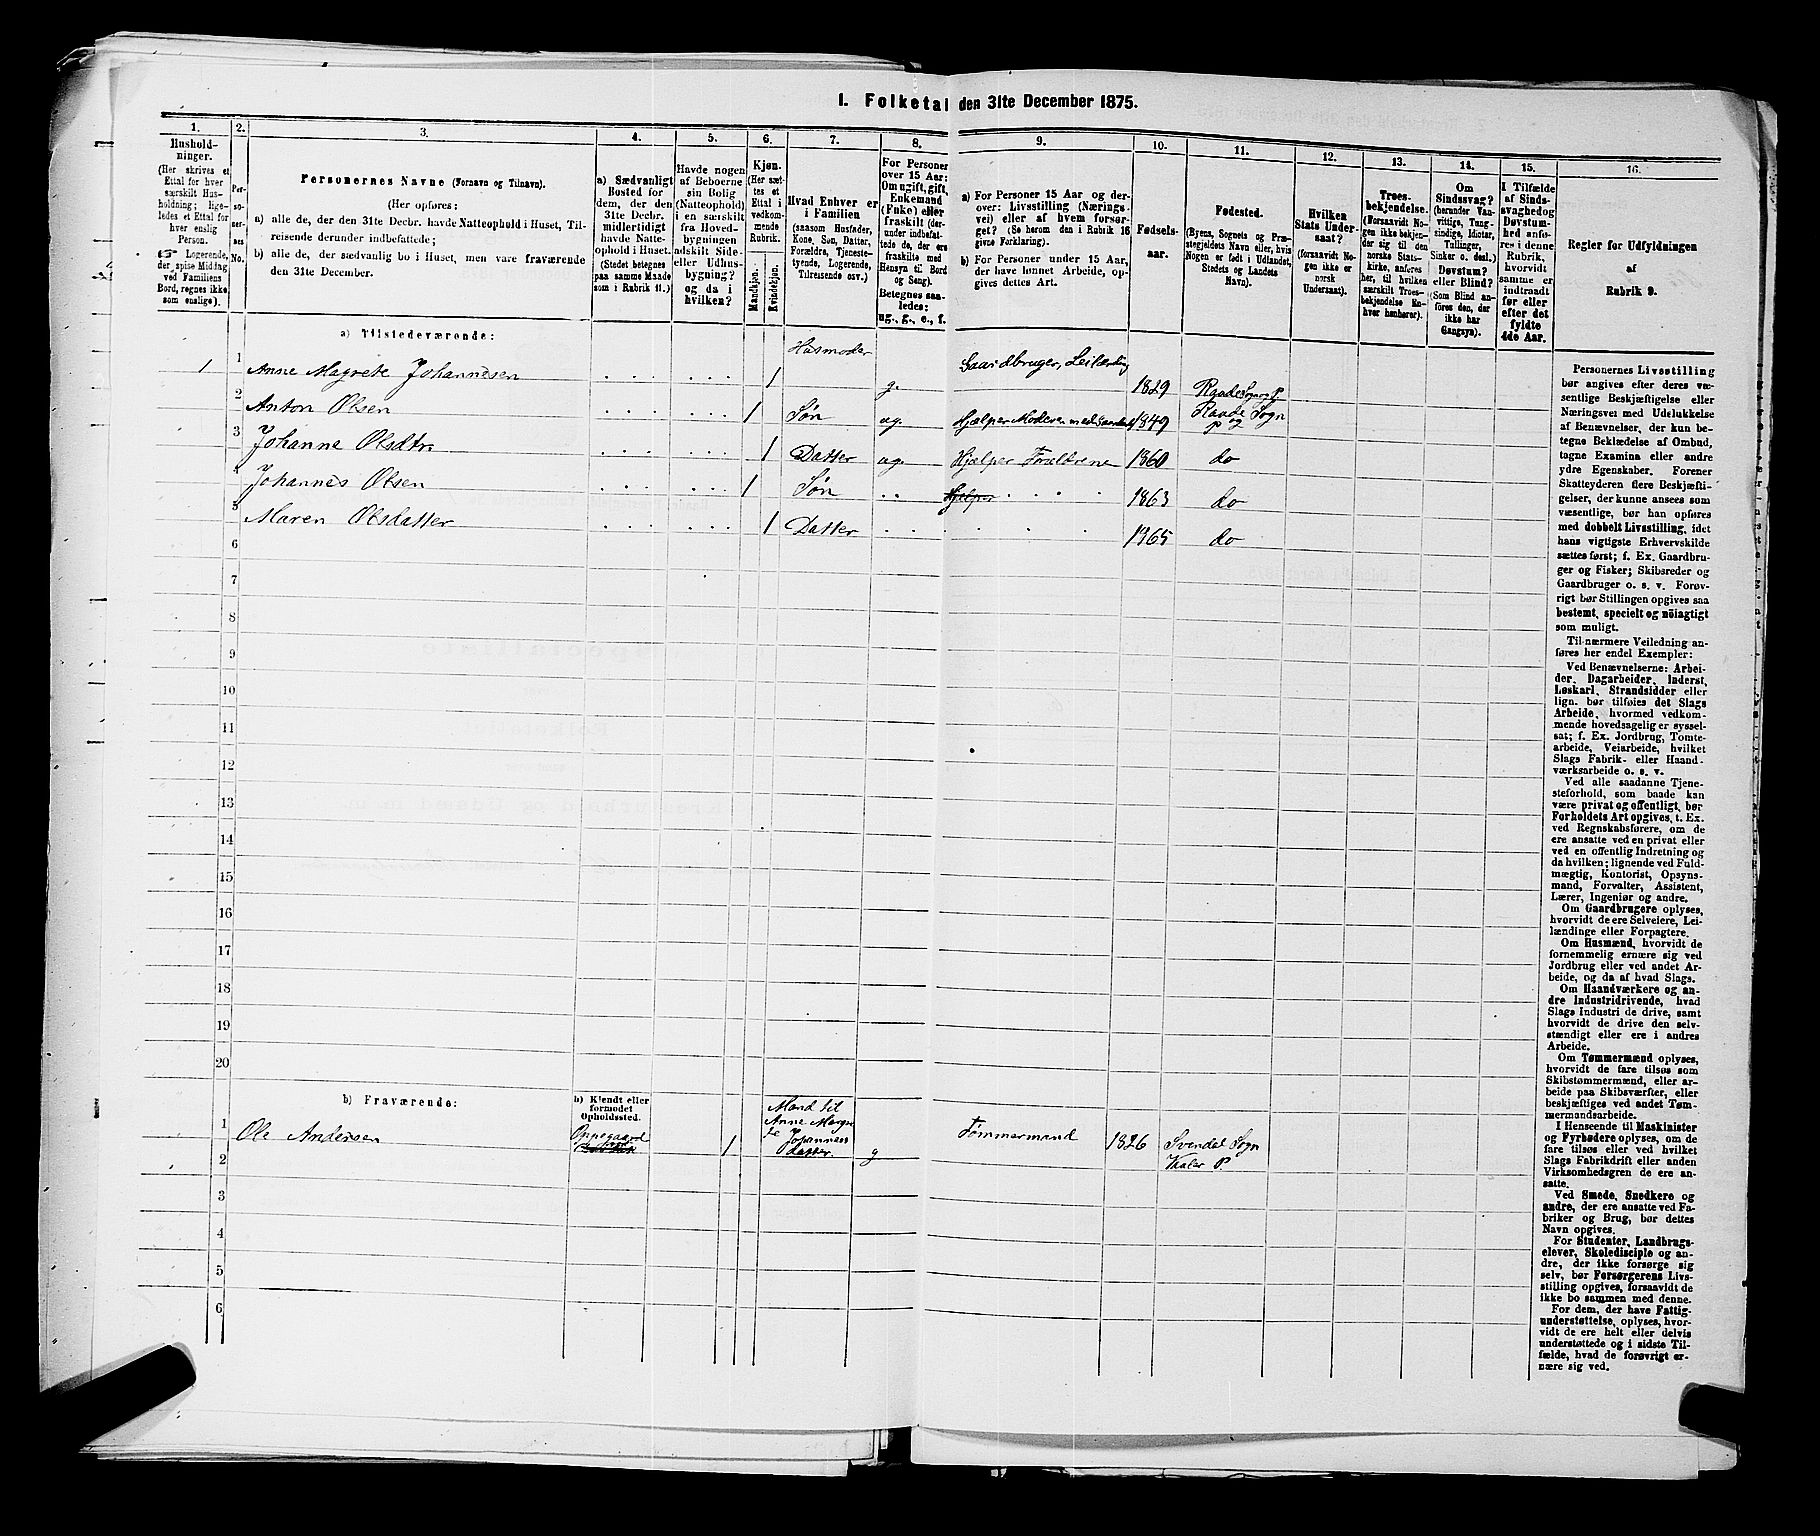 I. Folketal den 31te December 1875.
1.
Hushold-
ninger.
(Her skrives et
Ettal for hver
særskilt Hus-
holdning; lige-
ledes et Ettal for
hver enslig
Person.
☞ Logerende,
der spise Middag
ved Familiens
Bord, regnes ikke
som enslige).
2.
Per-
so-
ner-
nes
No.
3.
Personernes Navne (Fornavn og Tilnavn).
(Her opføres:
a) alle de, der den 31te Decbr. havde Natteophold i Huset, Til-
reisende derunder indbefattede;
b) alle de, der sædvanlig bo i Huset, men vare fraværende
den 31te December.
4.
a) Sædvanligt
Bosted for
dem, der den
31te Decbr.
midlertidigt
havde Natte-
ophold i Huset.
(Stedet betegnes
paa samme Maade
som i Rubrik 11.)
5.
Havde nogen
af Beboerne
sin Bolig
(Natteophold)
i en særskilt
fra Hoved-
bygningen
adskilt Side-
eller Udhus-
bygning?
og da i
hvilken?
6.
Kjøn.
(Her sæt-
tes et
Ettal i
vedkom-
mende
Rubrik.
Mandkjøn.
Kvindekjøn.
7.
Hvad Enhver er
i Familien
(saasom Husfader,
Kone, Søn, Datter,
Forældre, Tjeneste-
tyende, Logerende,
Tilreisende osv.)
8.
For Personer
over 15 Aar:
Om ugift, gift,
Enkemand
(Enke) eller
fraskilt (der-
under indbefat-
tede de, der ere
fraskilte med
Hensyn til Bord
og Seng).
Betegnes saa-
ledes:
ug., g., e., f.
9.
a) For Personer 15 Aar og der-
over: Livsstilling (Nærings-
vei) eller af hvem forsør-
get? (Se herom den i Rubrik 16
givne Forklaring).
b) For Personer under 15 Aar,
der have lønnet Arbeide, op-
gives dettes Art.
10.
Fødsels-
aar.
11.
Fødested.
(Byens, Sognets og Præ-
stegjeldets Navn eller, hvis
Nogen er født i Udlandet,
Stedets og Landets
Navn).
12.
Hvilken
Stats Under-
saat?
(forsaavidt No-
gen ikke er
norsk
Undersaat).
13.
Troes-
bekjendelse.
(Forsaavidt No-
gen ikke bekjen-
der sig til den
norske Stats-
kirke, anføres
her, til hvilken
særskilt Troes-
bekjendelse En-
hver henhører).
14.
Om
Sindssvag?
(herunder Van-
vittige, Tung-
sindige, Idioter,
Tullinger,
Sinker o. desl.)
Døvstum?
eller Blind?
(Som Blind an-
føres den, der
ikke har
Gangsyn).
15.
I Tilfælde
af Sinds-
svaghed og
Døvstum-
hed anfø-
res i denne
Rubrik,
hvorvidt
samme er
indtraadt
før eller
efter det
fyldte
4de Aar.
16.
Regler for Udfyldningen
af
Rubrik 9.
a) Tilstedeværende:
1 1 Anne Magrete Johannesen 1 Husmoder g. Gaardbruger, Leilænding 1829 Raade Sogn og P
2 Anton Olsen 1 Søn ug. Hjælper Moderen med 1849 Raade Sogn og P
3 Johanne Olsdtr 1 Datter ug. Hjelper Forældrene 1860 do
4 Johannes Olsen 1 Søn 1863 do
5 Maren Olsdatter 1 Datter 1865 do
6
7
8
9
10
11
12
13
14
15
16
17
18
19
20
b) Fraværende:
b) Kjendt eller
formodet
Opholdssted.
1 Ole Andersen Oppegaard 1 Mand til Anne Margrete Johannesdatter. g Tømmermand 1826 Svendal Sogn Vaaler P.
2
3
4
5
6
Personernes Livsstilling
bør angives efter deres væ-
sentlige Beskjæftigelse eller
Næringsvei med Udelukkelse
af Benævnelser, der kun be-
tegne Beklædelse af Ombud,
tagne Examina eller andre
ydre Egenskaber. Forener
Skatteyderen flere Beskjæfti-
gelser, der kunne ansees som
væsentlige, bør han opføres
med dobbelt Livsstilling, idet
hans vigtigste Erhvervskilde
sættes først; f. Ex. Gaardbru-
ger og Fisker; Skibsreder og
Gaardbruger o. s. v. Forøv-
rigt bør Stillingen opgives saa
bestemt, specielt og nöiagtigt
som muligt.
Til nærmere Veiledning an-
føres her endel Exempler:
Ved Benævnelserne: Arbei-
der, Dagarbeider, Inderst,
Løskarl, Strandsidder eller
lign. bør tilføies det Slags
Arbeide, hvormed vedkom-
mende hovedsagelig er syssel-
sat; f. Ex. Jordbrug, Tomte-
arbeide, Veiarbeide, hvilket
Slags Fabrik- eller Haand-
værksarbeide o. s. v.
Ved alle saadanne Tjene-
steforhold, som baade kan
være privat og offentligt, bør
Forholdets Art opgives, t. Ex.
ved Regnskabsførere, om de
ere ansatte ved en privat eller
ved en offentlig Indretning og
da hvilken; lignende ved Fuld-
mægtig, Kontorist, Opsyns-
mand, Forvalter, Assistent,
Lærer, Ingeniør og andre.
Om Gaardbrugere oplyses,
hvorvidt de ere Selveiere, Lei-
lændinge eller Forpagtere.
Om Husmænd, hvorvidt de
fornemmelig ernære sig ved
Jordbrug eller ved andet Ar-
beide, og da af hvad Slags.
Om Haandværkere og an-
dre Industridrivende, hvad
Slags Industri de drive, samt
hvorvidt de drive den selv-
stændigt eller ere i andres
Arbeide.
Om Tømmermænd oplyses,
hvorvidt de fare tilsøs som
Skibstømmermænd, eller ar-
beide paa Skibsværfter, eller
beskjæftiges ved andet Tøm-
mermandsarbeide.
I Henseende til Maskinister
og Fyrbødere oplyses, om de
fare tilsøs eller ved hvilket
Slags Fabrikdrift eller anden
Virksomhedsgren de ere an-
satte.
Ved Smede, Snedkere og
andre, der ere ansatte ved Fa-
briker og Brug, bør dettes
Navn opgives.
For Studenter, Landbrugs-
elever, Skoledisciple og an-
dre, der ikke forsørge sig
selv, bør Forsørgerens Livs-
stilling opgives, forsaavidt de
ikke bo sammen med denne.
For dem, der have Fattig-
understøttelse, oplyses, hvor-
vidt de ere helt eller delvis
understøttede og i sidste Til-
fælde, hvad de forøvrigt er-
nære sig ved.